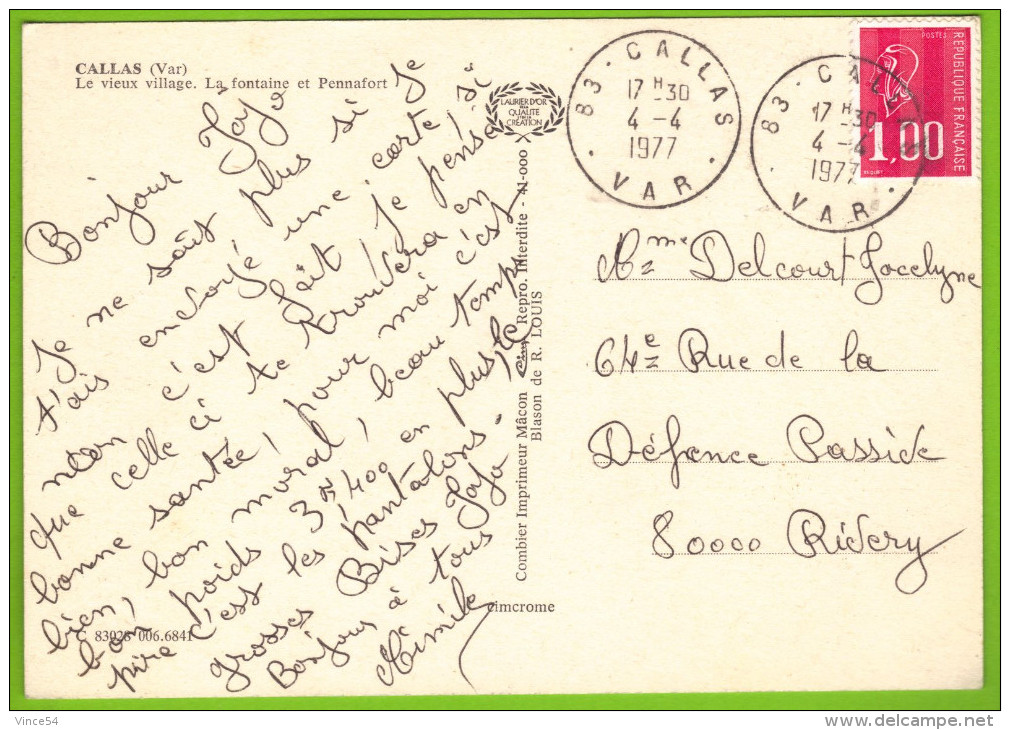 CALLAS (Var)
Le vieux village. La fontaine et Pennafort
LAURIER D'OR
DE LA
QUALITÉ
CRÉATION
Bonjour Jojo
Je ne sait plus si je
t'ais envoyé une carte, si
non c'est fait, je pense
que celle ci te trouvera en
bonne santée, pour moi c'est
bien, bon moral, beau temps
bon poids 3 400 en plus, le
pire c'est les pantalons.
grosses Bises Jojo
Bonjour à tous
Mimile
C 83028 006.6841
Combier Imprimeur Mâcon Cim Repro. Interdite - 41-000
Blason de R. LOUIS
cimcrome
83 · CALLAS
17 H 30
4 - 4
1977
· VAR ·
83 · CALLAS
17 H 30
4 - 4
1977
· VAR ·
POSTES
RÉPUBLIQUE FRANÇAISE
1,00
Mme Delcourt Jocelyne
64e Rue de la
Défence Passive
80000 Rivery
Vince54
http://www.delcampe.net